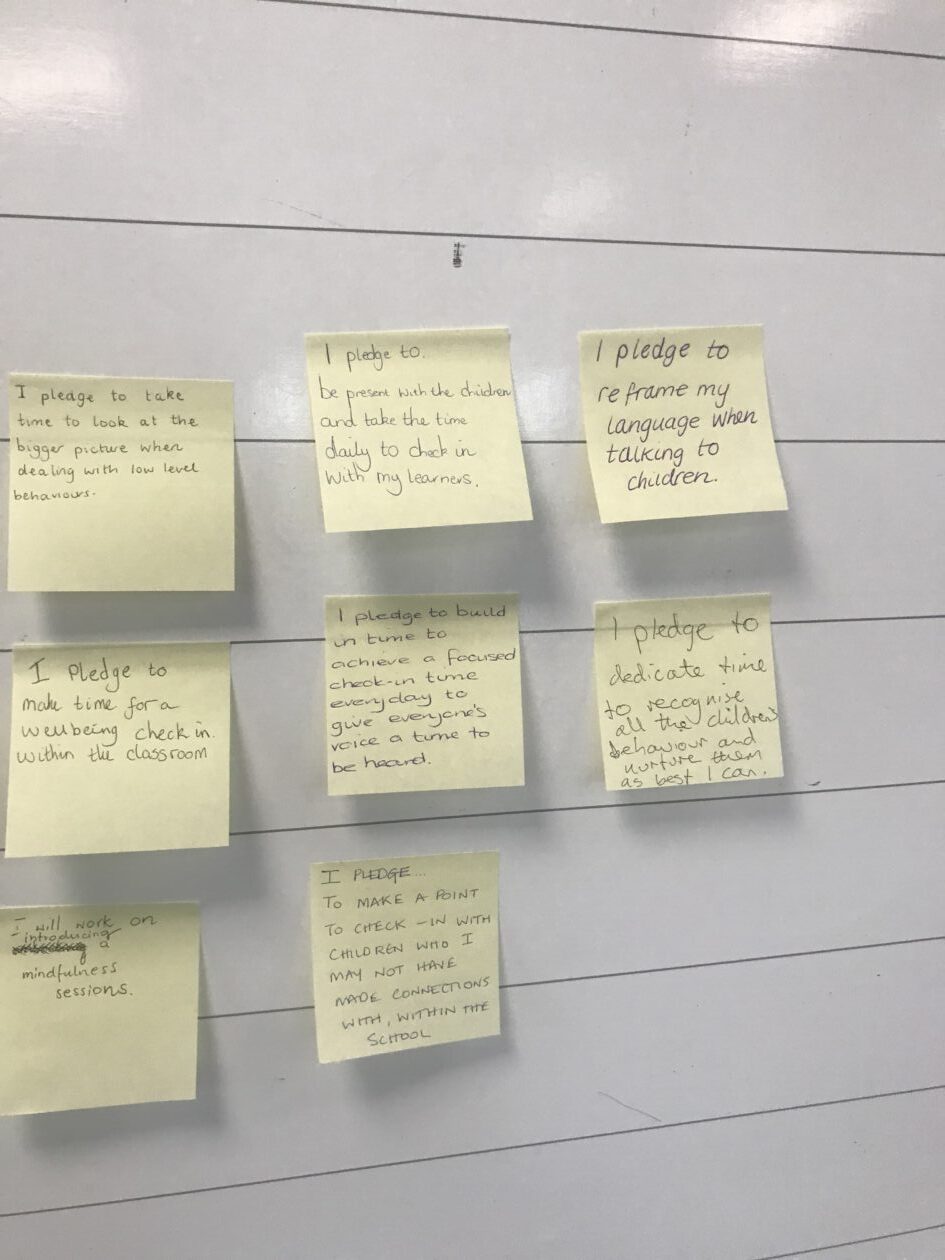 I pledge to take
time to look at the
bigger picture when
dealing with low level
behaviours.
I pledge to.
be present with the children
and take the time
daily to check in
with my learners.
I pledge to
reframe my
language when
talking to
children.
I Pledge to
make time for a
wellbeing check in.
within the classroom
I pledge to build
in time to
achieve a focused
check-in time
everyday to
give everyone's
voice a time to
be heard.
I pledge to
dedicate time
to recognise
all the children's
behaviour and
nurture them
as best I can.
I will work on
introducing
a
mindfulness
sessions.
I PLEDGE...
TO MAKE A POINT
TO CHECK-IN WITH
CHILDREN WHO I
MAY NOT HAVE
MADE CONNECTIONS
WITH, WITHIN THE
SCHOOL